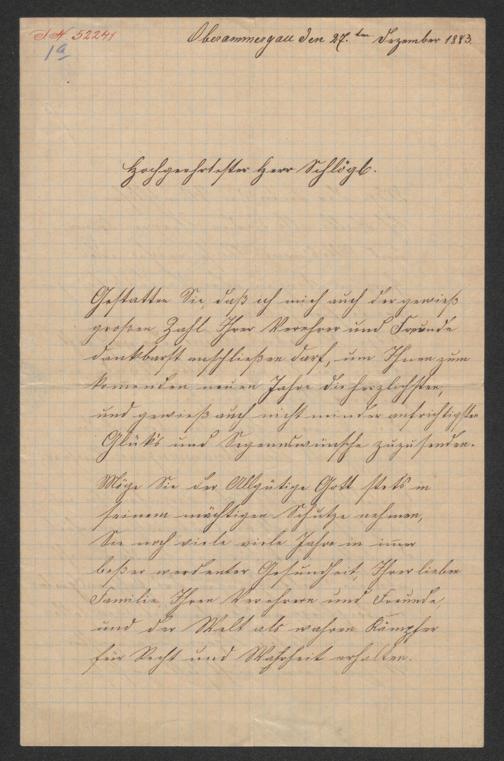 J.N. 52241
1a
Oberammergau den 27.ten Dezember 1883.
Hochgeehrtester Herr Schlögl.
Gestatten Sie, daß ich mich auch der gewieß
großen Zahl Ihrer Verehrer und Freunde
dankbarst anschließen darf, um Ihnen zum
komenden neuen Jahre die herzlichsten,
und gewieß auch nicht minder aufrichtigsten
Glüks und Segenswünsche zuzusenden.
Möge Sie der Allgütige Gott stets in
seinem mächtigen Schutze nehmen,
Sie noch viele viele Jahre in imer
beßer werdenter Gesundheit, Ihrer lieben
Familie Ihren Verehrern und Freunde,
und der Welt als wahren Kämpfer
für Recht und Wahrheit erhalten.